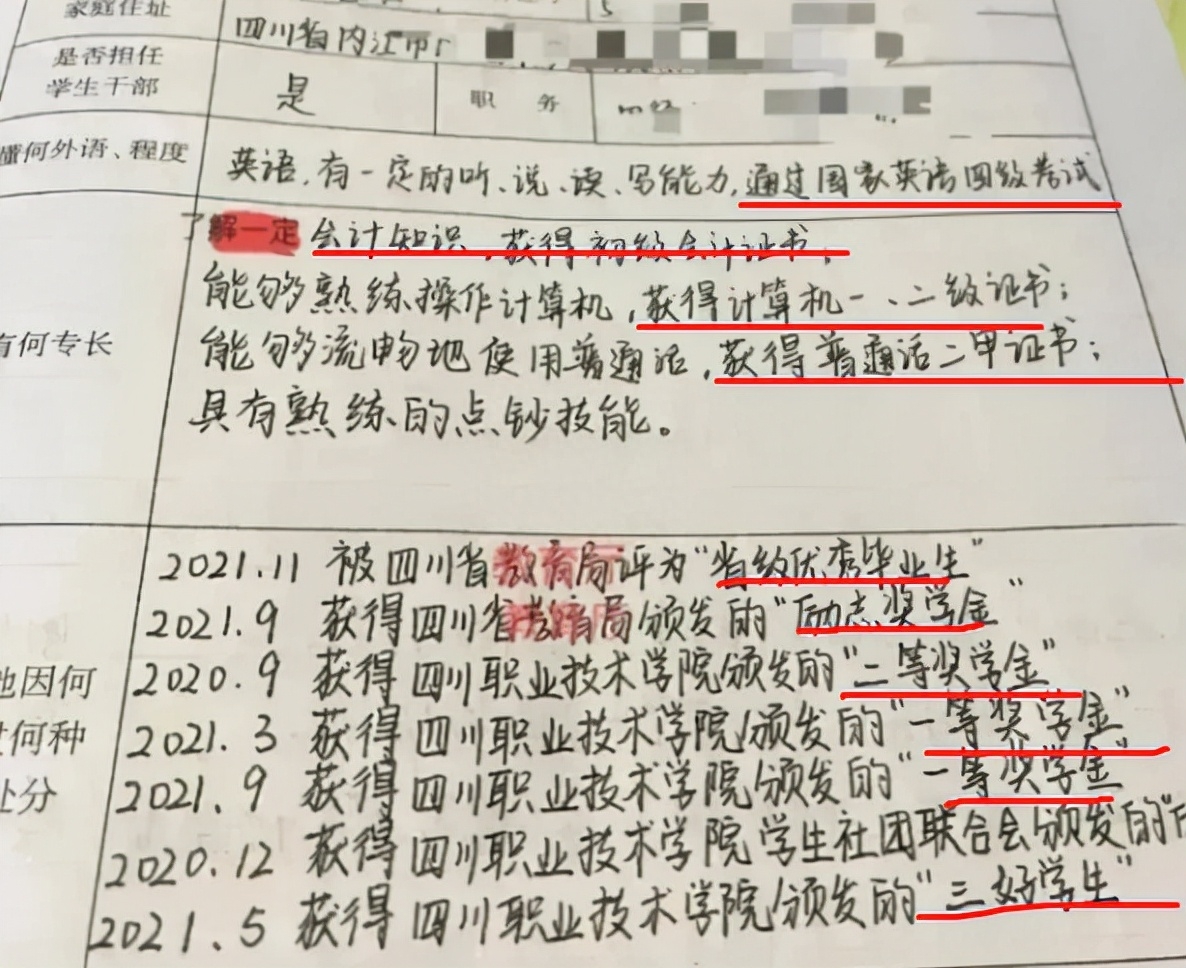 家庭住址
四川省内江市
是否担任
学生干部
是
职 务
懂何外语、程度
英语,有一定的听、说、读、写能力,通过国家英语四级考试
了解一定会计知识,获得初级会计证书;
能够熟练操作计算机,获得计算机一、二级证书;
有何专长
能够流畅地使用普通话,获得普通话二甲证书;
具有熟练的点钞技能。
2021.11 被四川省教育局评为"省级优秀毕业生"
2021.9 获得四川省教育局颁发的"励志奖学金"
他因何
2020.9 获得四川职业技术学院颁发的"二等奖学金"
何种
2021.3 获得四川职业技术学院颁发的"一等奖学金"
处分
2021.9 获得四川职业技术学院颁发的"一等奖学金"
2020.12 获得四川职业技术学院学生社团联合会颁发的"
2021.5 获得四川职业技术学院颁发的"三好学生"